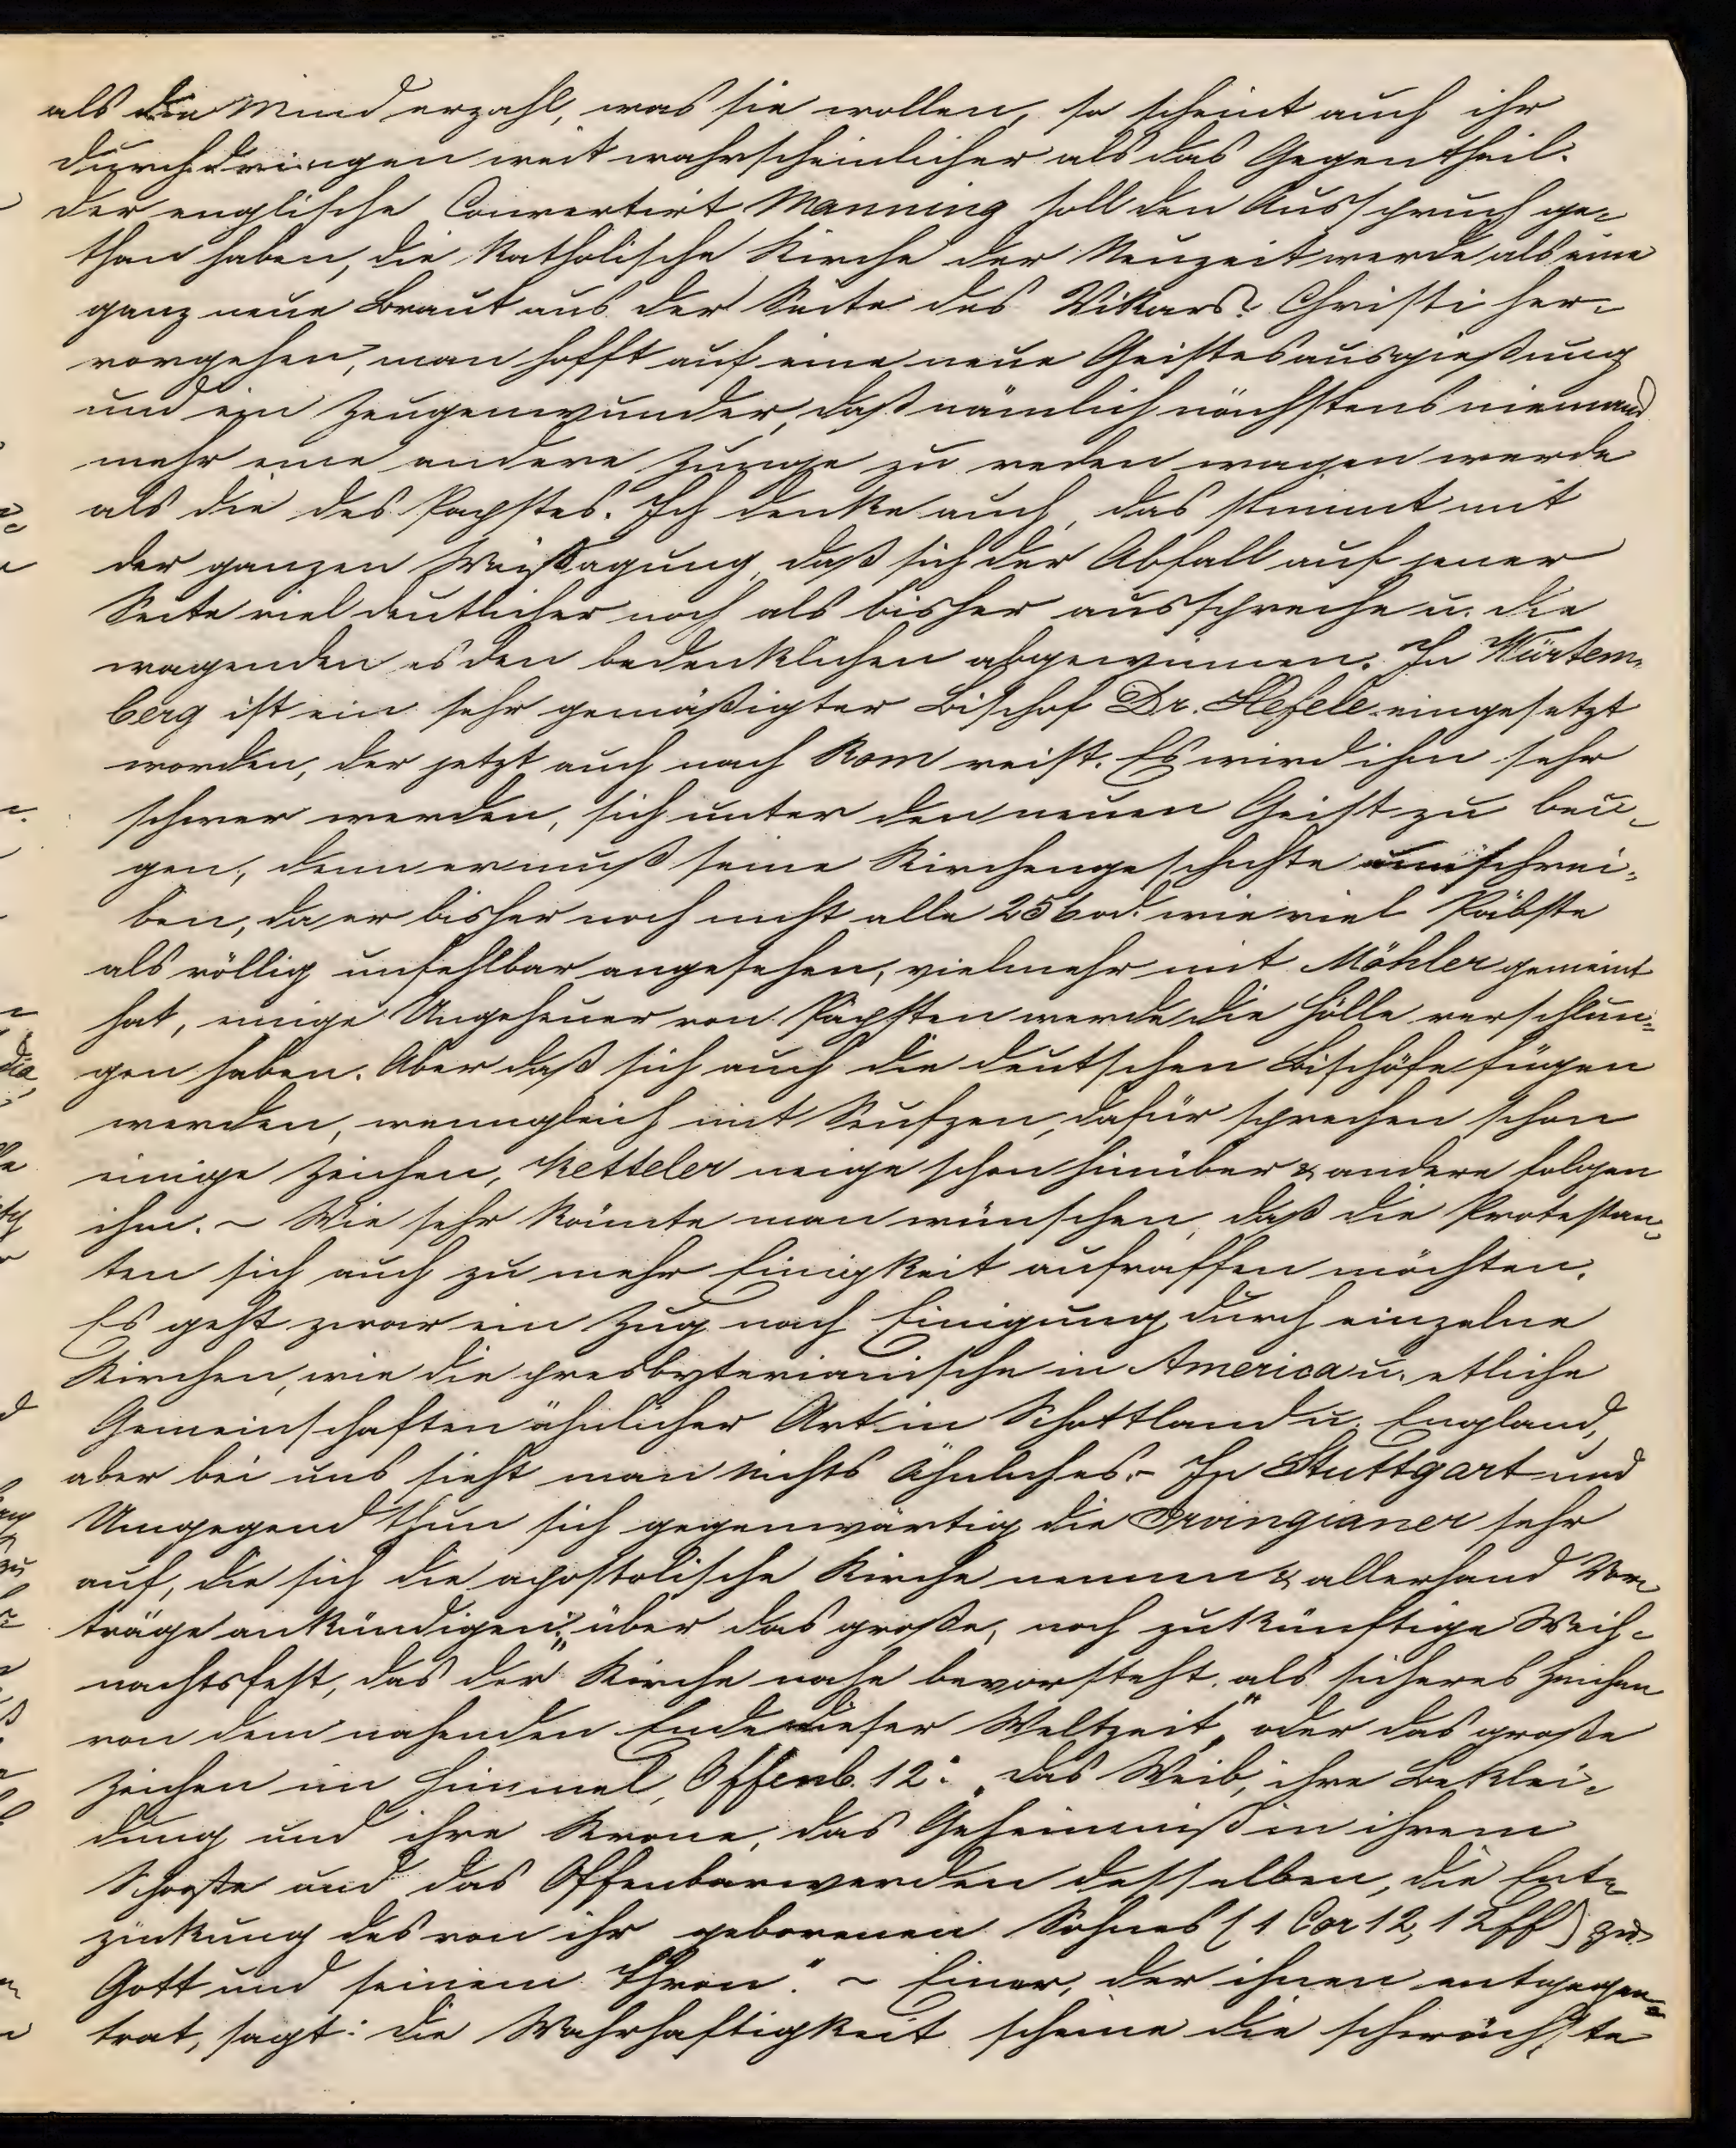 als die Minderzahl, was sie wollen, so scheint auch ihr
durchdringen weit wahrscheinlicher als das Gegentheil.
Der englische Convertirt Manning soll den Ausspruch ge-
than haben, die katholische Kirche der Neuzeit werde als eine
ganz neue Braut aus der Seite des Vikars? Christi her-
vorgehen, man hofft auf eine neue Geistesausgießung
und ein Zeugenwunder, daß nämlich nächstens niemand
mehr eine andere Zunge zu reden wagen werde
als die des Papstes. Ich denke auch, das stimmt mit
der ganzen Weissagung, daß sich der Abfall auf jener
Seite viel deutlicher noch als bisher ausspreche u. die
wagenden es den bedenklichen abgewinnen. In Würtem-
berg ist ein sehr gemäßigter Bischof Dr. Hefele eingesetzt
worden, der jetzt auch nach Rom reist. Es wird ihm sehr
schwer werden, sich unter den neuen Geist zu beu-
gen, denn er muß seine Kirchengeschichte umschrei-
ben, da er bisher noch nicht alle 256 od. wie viel Päbste
als völlig unfehlbar angesehen, vielmehr mit Möhler gemeint
hat, einige Ungeheuer von Päpsten werde die Hölle verschlun-
gen haben. Aber daß sich auch die deutschen Bischöfe fügen
werden, wenngleich mit Seufzen, dafür sprechen schon
einige Zeichen, Ketteler neige schon hinüber & andere folgen
ihm. ~ Wie sehr könnte man wünschen, daß die Protestan-
ten sich auch zu mehr Einigkeit aufraffen möchten.
Es geht zwar ein Zug nach Einigung durch einzelne
Kirchen, wie die presbyterianische in America u. etliche
Gemeinschaften ähnlicher Art in Schottland u. England,
aber bei uns sieht man nichts Ähnliches. - In Stuttgart und
Umgegend thun sich gegenwärtig die Irvingianer sehr
auf, die sich die apostolische Kirche nennen & allerhand Vor-
träge ankündigen: "über das große, noch zukünftige Weih-
nachtsfest, das der Kirche nahe bevorsteht, als sicheres Zeichen
von dem nahenden Ende dieser Weltzeit", oder das große
Zeichen im Himmel, Offenb. 12: "das Weib, ihre Beklei-
dung und ihre Krone, das Geheimniß in ihrem
Schooße und das Offenbarwerden desselben, die Ent-
zückung des von ihr geborenen Sohnes (1 Cor 12, 12ff) zu
Gott und seinem Thron." ~ Einer, der ihnen entgegen-
trat, sagt: die Wahrhaftigkeit scheine die schwächste